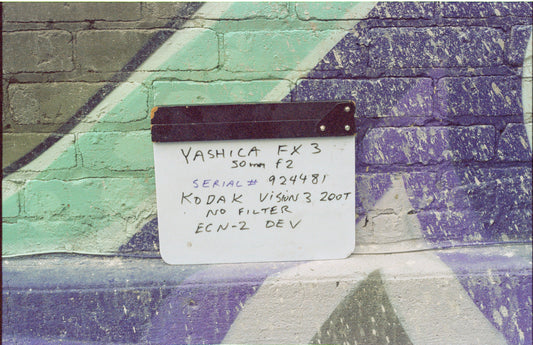 YASHICA FX 3
50mm f2
SERIAL # 924481
KODAK VISION 3 200T
NO FILTER
ECN-2 DEV